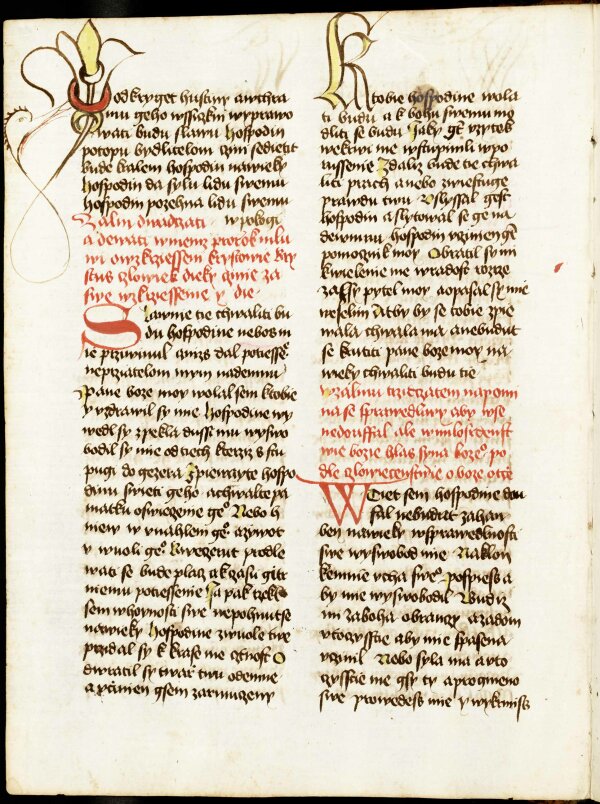 odkryget hustiny a wchra
mu geho wssiczkni wyprawo
wati budu slawu Hospodin
potopu bydliteolom czini a sedieti
bude kralem hospodin nawieky
Hospodin da sylu lidu swemu
hospodin pozehna lidu swemu
Zalm dwadczati w pokogi
a dewati w niemz prorok mlu
wi o wzkrziessenie krystowie kry
stus czlowiek dieky czinie za
swe wzkrziessenie y die
Slawiti tie chwaliti bu
du hospodine nebos m
ie przigimul a nizs dal potiesse
neprziatelom mym nademnu
Pane boze moy wolal sem k tobie
y vzdrawil sy mie Hospodine wy
wedl sy z pekla dussi mu wyswo
bodil sy mie od tiech kterziz s stu
pugi do gezera Zpiewayte hospo
dinu swieti geho a chwalte pa
matku oswieczenie geo Nebo h
niew w rozhniewani geo a zywot
v wuoli geo K weczeru prodle
wati se bude placz a k zasu gitr
niemu potiessenie Ja pak rzekl
sem w hoynosti swe nepohnu se
nawieky Hospodine z wuole twe
przidal sy k krase me cznost O
dwratil sy twarz twu odemne
a uczinien gsem zarmuczeny
K tobie hospodine wola
ti budu a k bohu swemu mo
dliti se budu Jaky gest vzytek
we krwi me w stupuli w po
russenie Zdaliz bude tie chwa
liti prach a nebo zwiestuge
prawdu twu Uslyssal gest
hospodin a slytowal se ge na
demnu hospodin vczinien gest
pomoznik moy Obratil sy mi
kwielenie me w radost rozrze
zal sy pytel moy a opasal sy mie
weselim Aby by se tobie zpie
wala chwala ma a nebudut
se krutiti pane boze moy na
wieky chwaliti budu tie
W zalmu trzidczatem napomi
na se sprawedliwy aby w se
nedouffal ale w milosrdenst
wie bozie hlas syna bozeo po
dle czlowieczenstwie o boze otcze
W Tiet sem hospodine dou
fal nebudut zahan
ben nawieky w sprawedlnosti
swe wyswobod mie Naklon
ke mnie vcha sweo pospiess a
by mie wyswobodil Bud iz
mi za boha obrancze a za dom
vtocziscie aby mie spasena
vczinil Nebo syla ma a vto
czyscie me gsy ty a pro gmeno
swe prowedess mie y wykrmiss